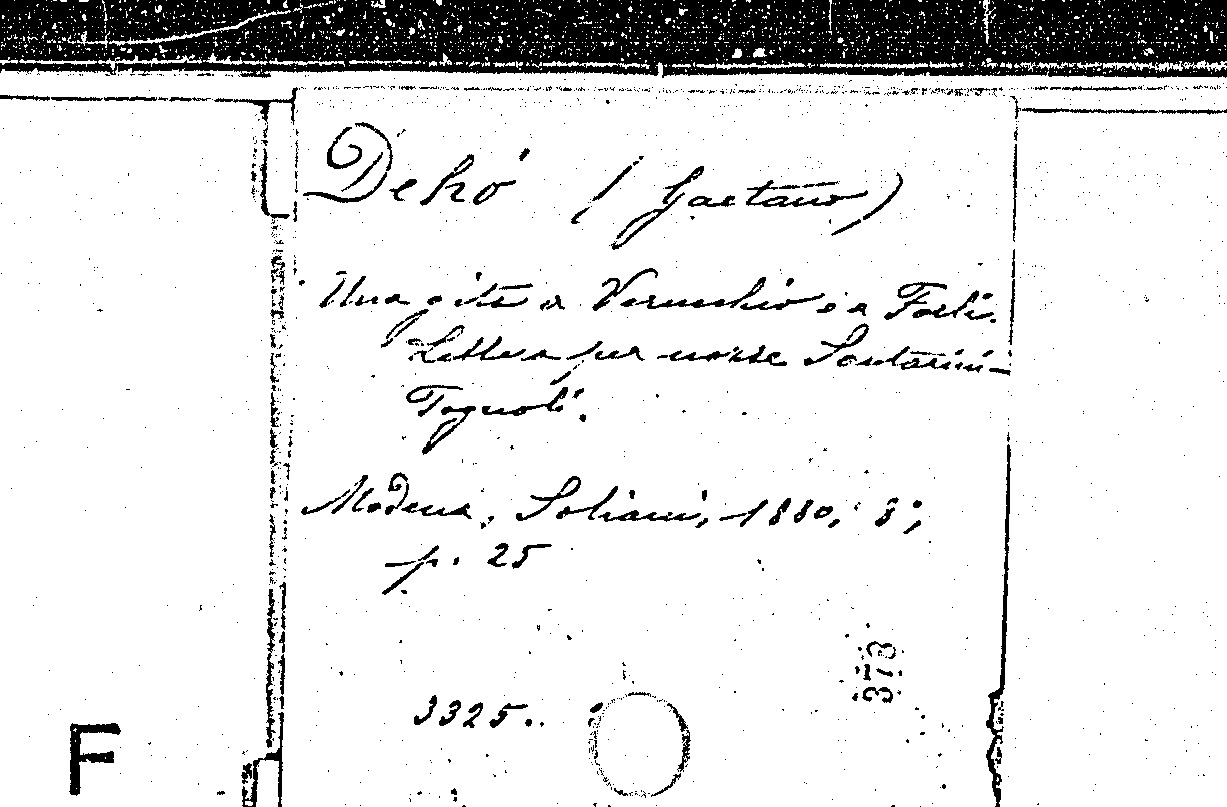 Dehò (Gaetano)
Una gita a Verucchio e a Forlì.
Lettera per nozze Santarini-
Tognoli.
Modena, Soliani, 1880, 8°,
p. 25
373
3325.
F